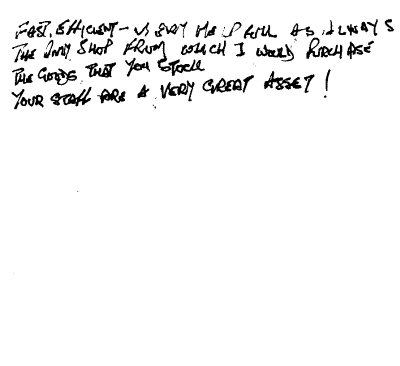 FAST, EFFICIENT - VERY HELPFUL AS ALWAYS
THE ONLY SHOP FROM WHICH I WOULD PURCHASE
THE GOODS THAT YOU STOCK
YOUR STAFF ARE A VERY GREAT ASSET!